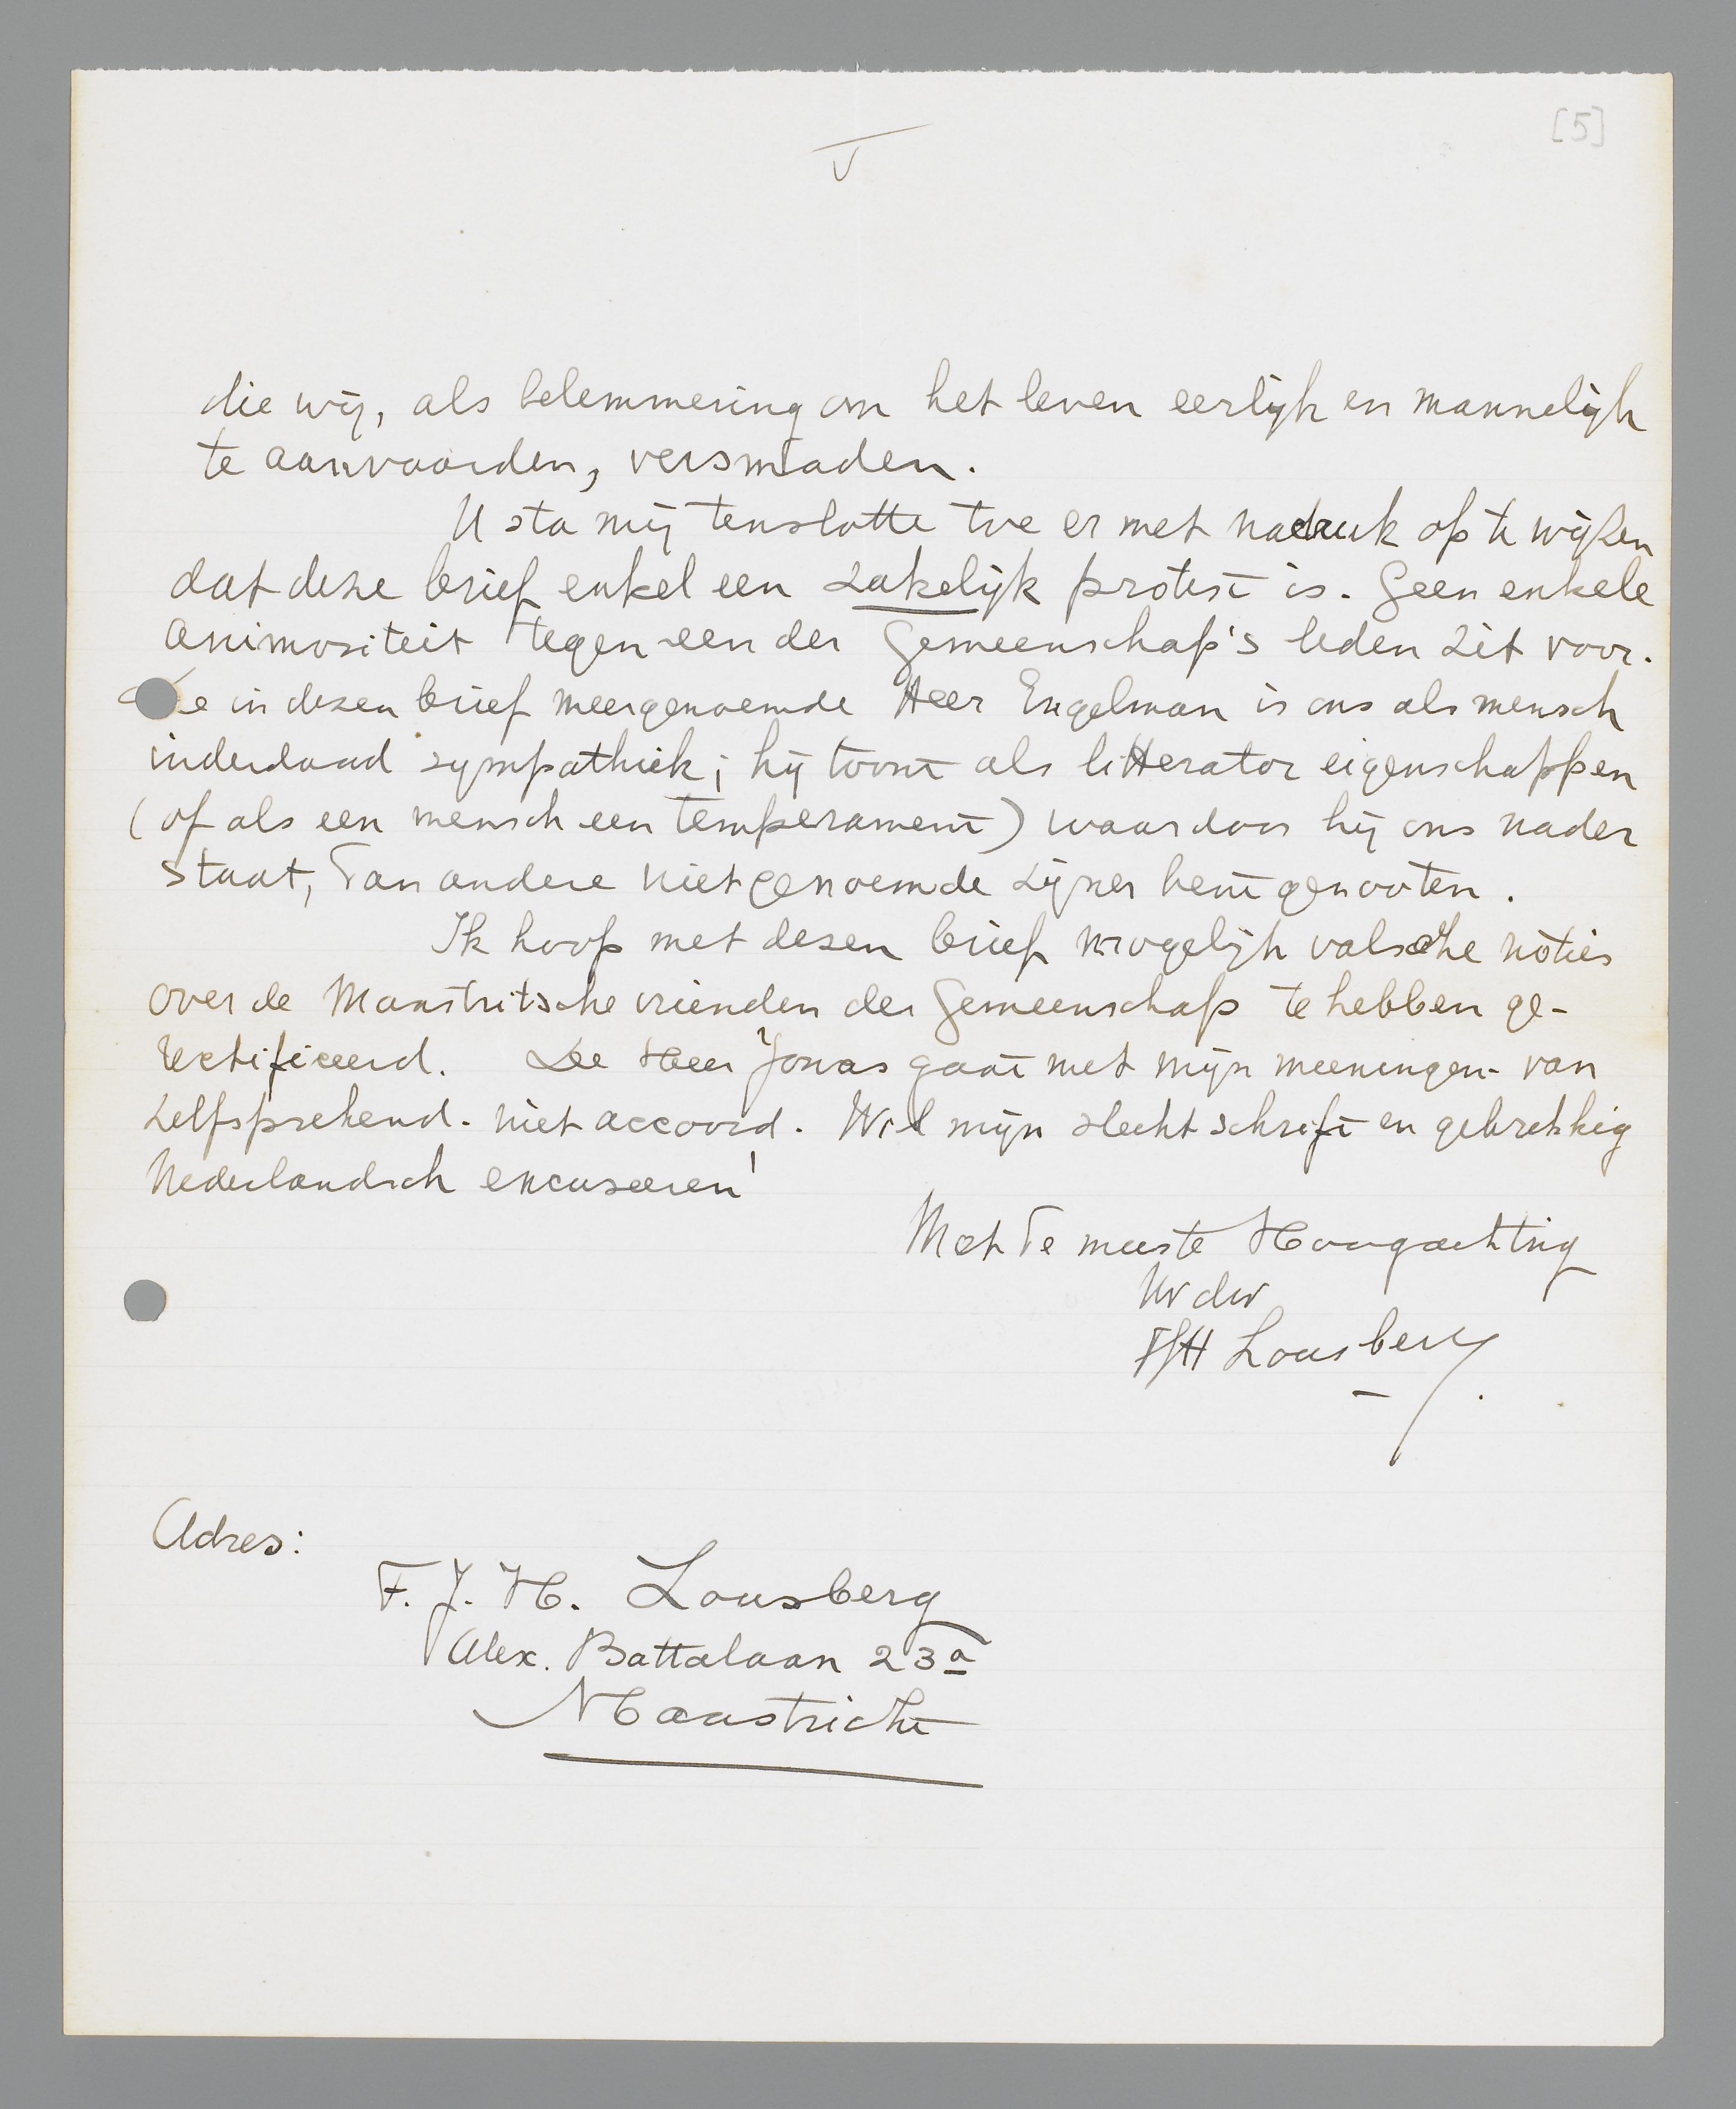 [5]
V
die wij, als belemmering om het leven eerlijk en mannelijk
te aanvaarden, versmaden.
U sta mij tenslotte toe er met nadruk op te wijzen
dat deze brief enkel een zakelijk protest is. Geen enkele
animositeit tegen een der Gemeenschap's leden zit voor.
De in dezen brief meergenoemde Heer Engelman is ons als mensch
inderdaad sympathiek; hij toont als litterator eigenschappen
(of als een mensch een temperament) waardoor hij ons nader
staat, dan andere niet genoemde zijner bentgenooten.
Ik hoop met dezen brief mogelijk valsche noties
over de Maastritsche vrienden der Gemeenschap te hebben ge-
rectificeerd. De Heer Jonas gaat met mijn meeningen - van
zelfsprekend - niet accoord. Wil mijn slecht schrift en gebrekkig
Nederlandsch excuseeren!
Met de meeste Hoogachting
Uw dw
FJH Lousberg
Adres:
F. J. H. Lousberg
Alex. Battalaan 23a
Maastricht